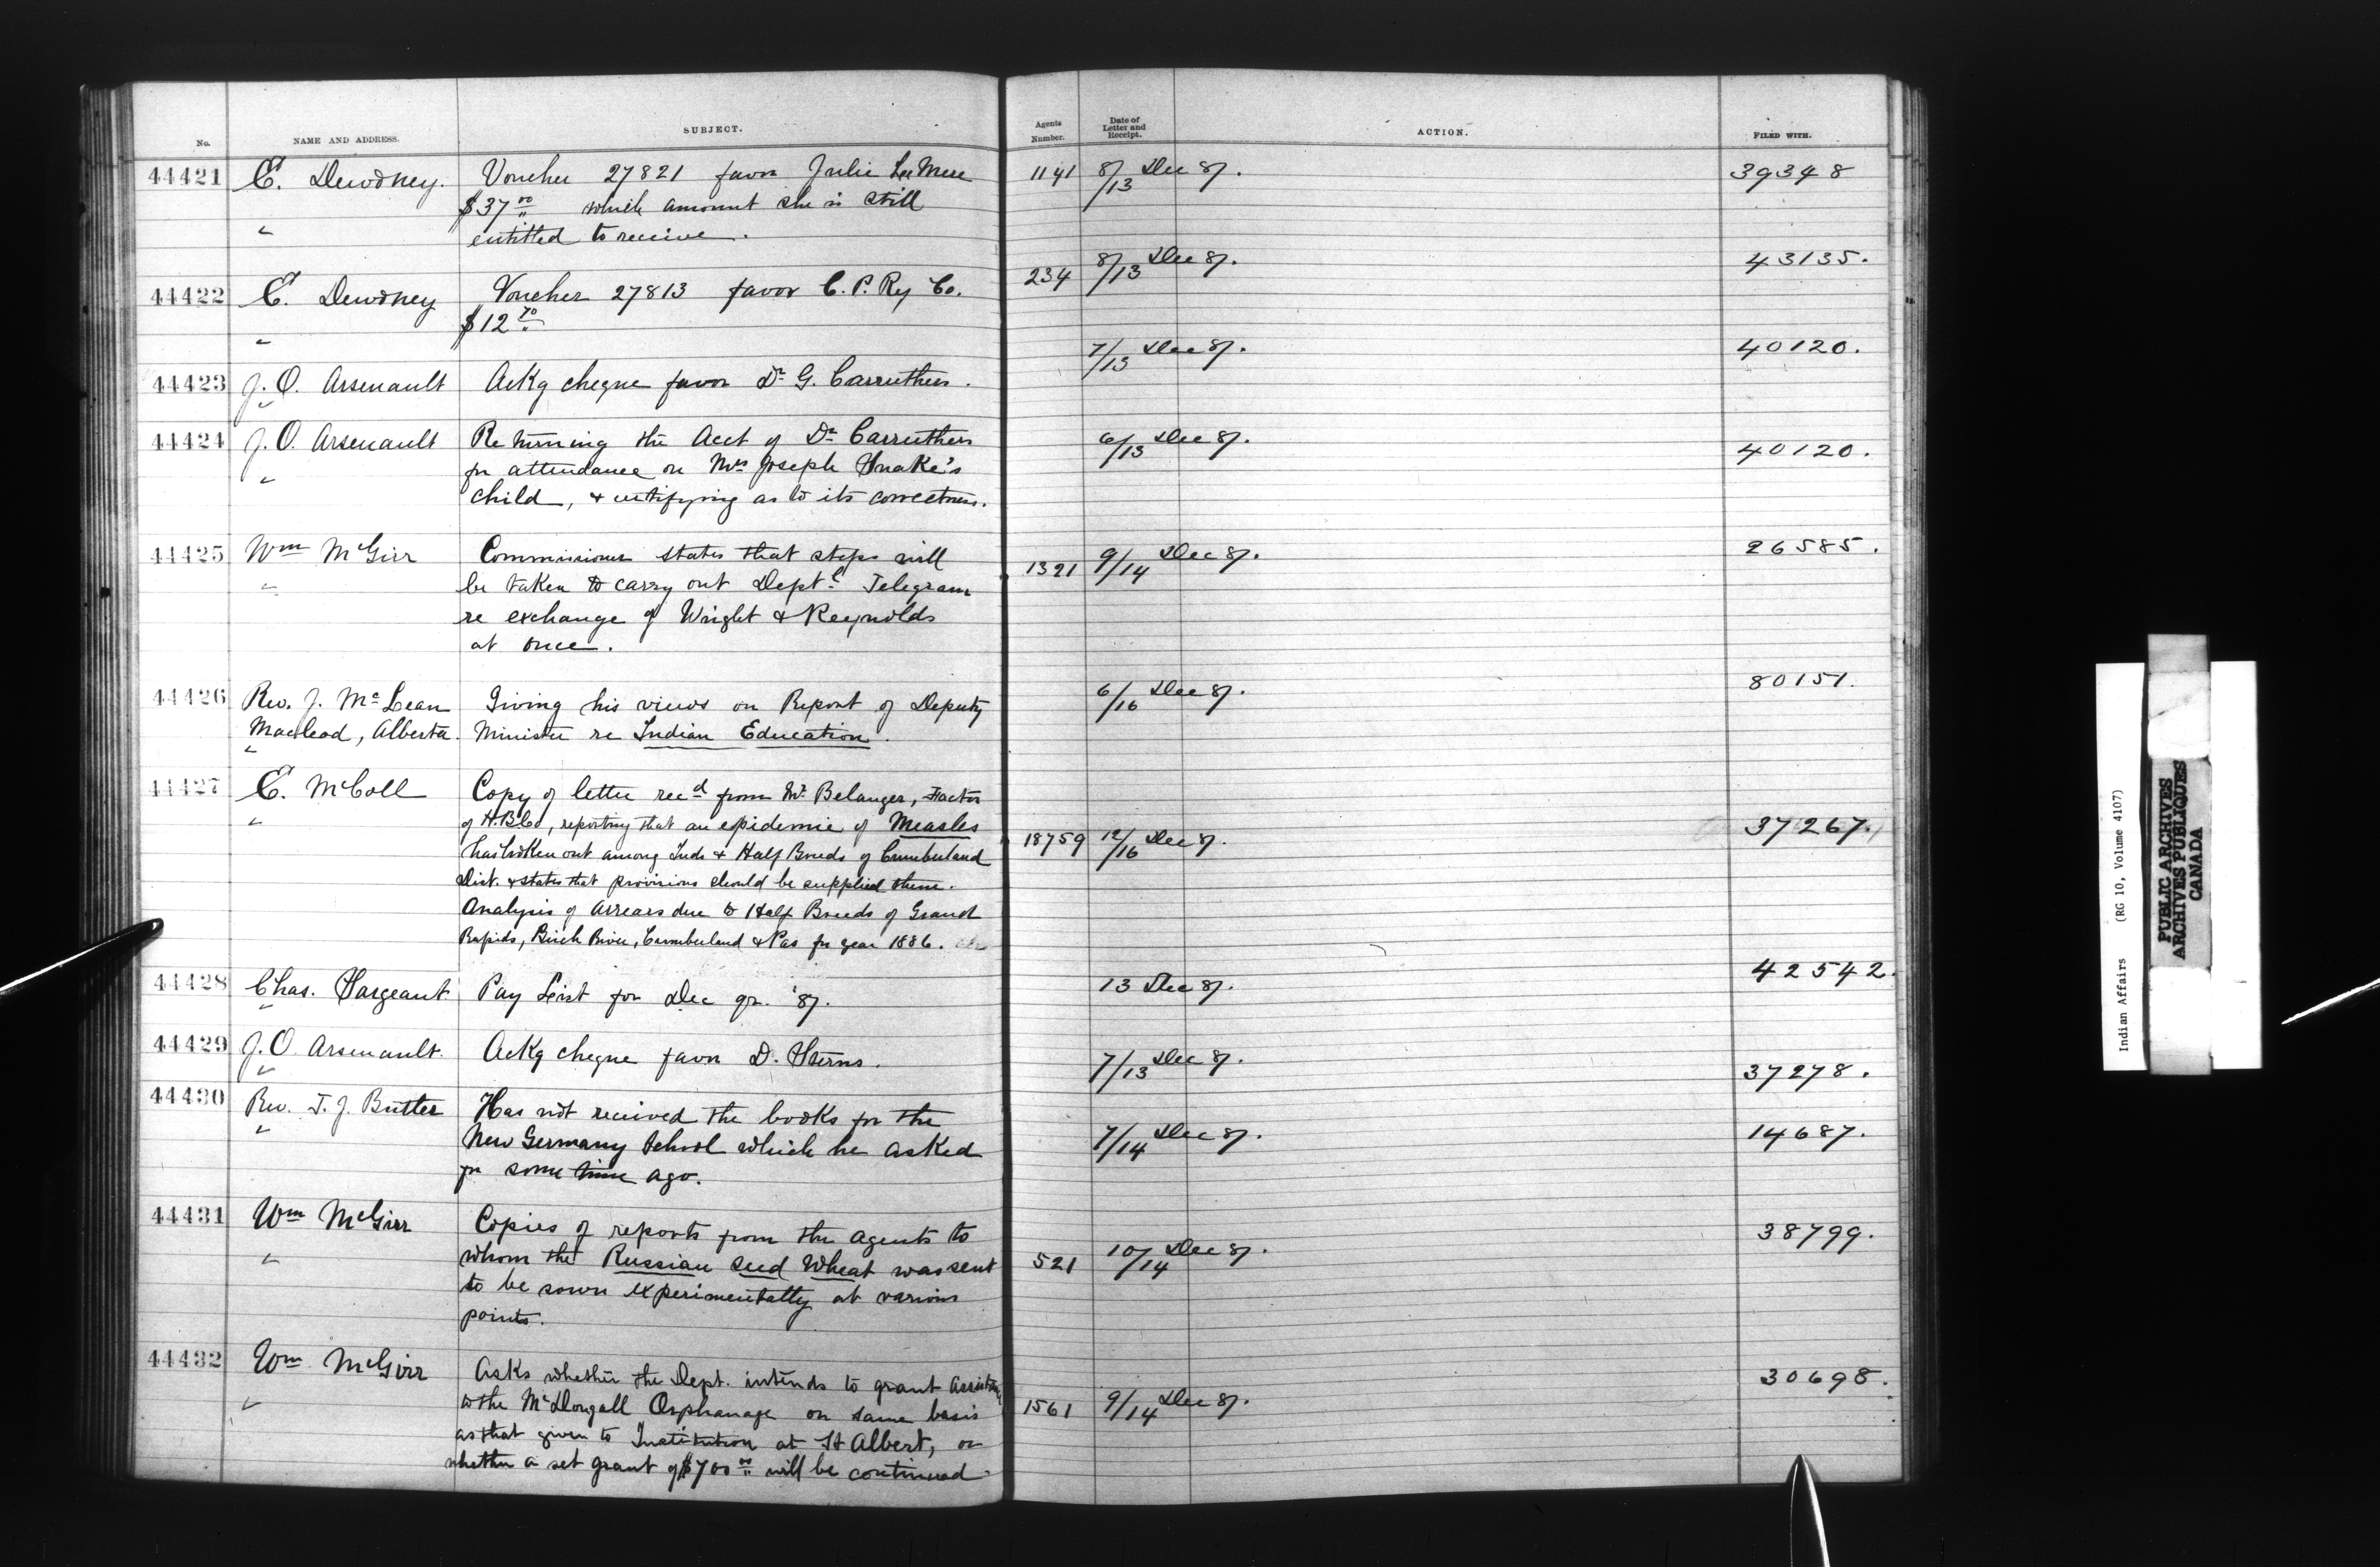 No. NAME AND ADDRESS. SUBJECT. Agents Number. Date of Letter and Receipt. ACTION. FILED WITH.
44421 E. Dewdney. Voucher 27821 favor Julie 1141 8/13 Dec 87. 39348
$37 00/" which amount she is still
" entitled to receive.
44422 E. Dewdney Voucher 27813 favor C. P. Ry Co. 234 8/13 Dec 87. 43135.
" $12 70/"
44423 J. O. Arsenault Ackg cheque favor Dr G. Carruthers. 7/13 Dec 87. 40120.
"
44424 J. O. Arsenault Returning the Acct of Dr Carruthers 6/13 Dec 87. 40120.
" for attendance on Mrs Joseph Snake's
child, & certifying as to its correctness.
44425 Wm McGirr Commissioner states that steps will 1321 9/14 Dec 87. 26585.
" be taken to carry out Deptl Telegram
re exchange of Wright & Reynolds
at once.
44426 Rev. J. McLean Giving his views on Report of Deputy 6/16 Dec 87. 80151.
Macleod, Alberta. Minister re Indian Education.
"
44427 E. McColl Copy of letter recd from Mr Belanger, Factor
" of H.B.Co, reporting that an epidemic of Measles 18759 12/16 Dec 87. 37267.
has broken out among Inds & Half Breeds of Cumberland
Dist. & states that provisions should be supplied them.
Analysis of arrears due to Half Breeds of Grand
Rapids, Birch River, Cumberland & Pas for year 1886.
44428 Chas. Sargeant Pay List for Dec qr. '87. 13 Dec 87. 42542.
"
44429 J. O. Arsenault. Ackg cheque favor D. Sterns. 7/13 Dec 87. 37278.
"
44430 Rev. T. J. Butler Has not received the books for the 7/14 Dec 87. 14687.
" New Germany School which he asked
for some time ago.
44431 Wm McGirr Copies of reports from the agents to 521 10/14 Dec 87. 38799.
" whom the Russian seed Wheat was sent
to be sown experimentally at various
points.
44432 Wm McGirr Asks whether the Dept. intends to grant 1561 9/14 Dec 87. 30698.
" to the McDougall Orphanage on same basis
as that given to Institution at St Albert, or
whether a set grant of $700 00/" will be continued
Indian Affairs (RG 10, Volume 4107)
PUBLIC ARCHIVES
ARCHIVES PUBLIQUES
CANADA